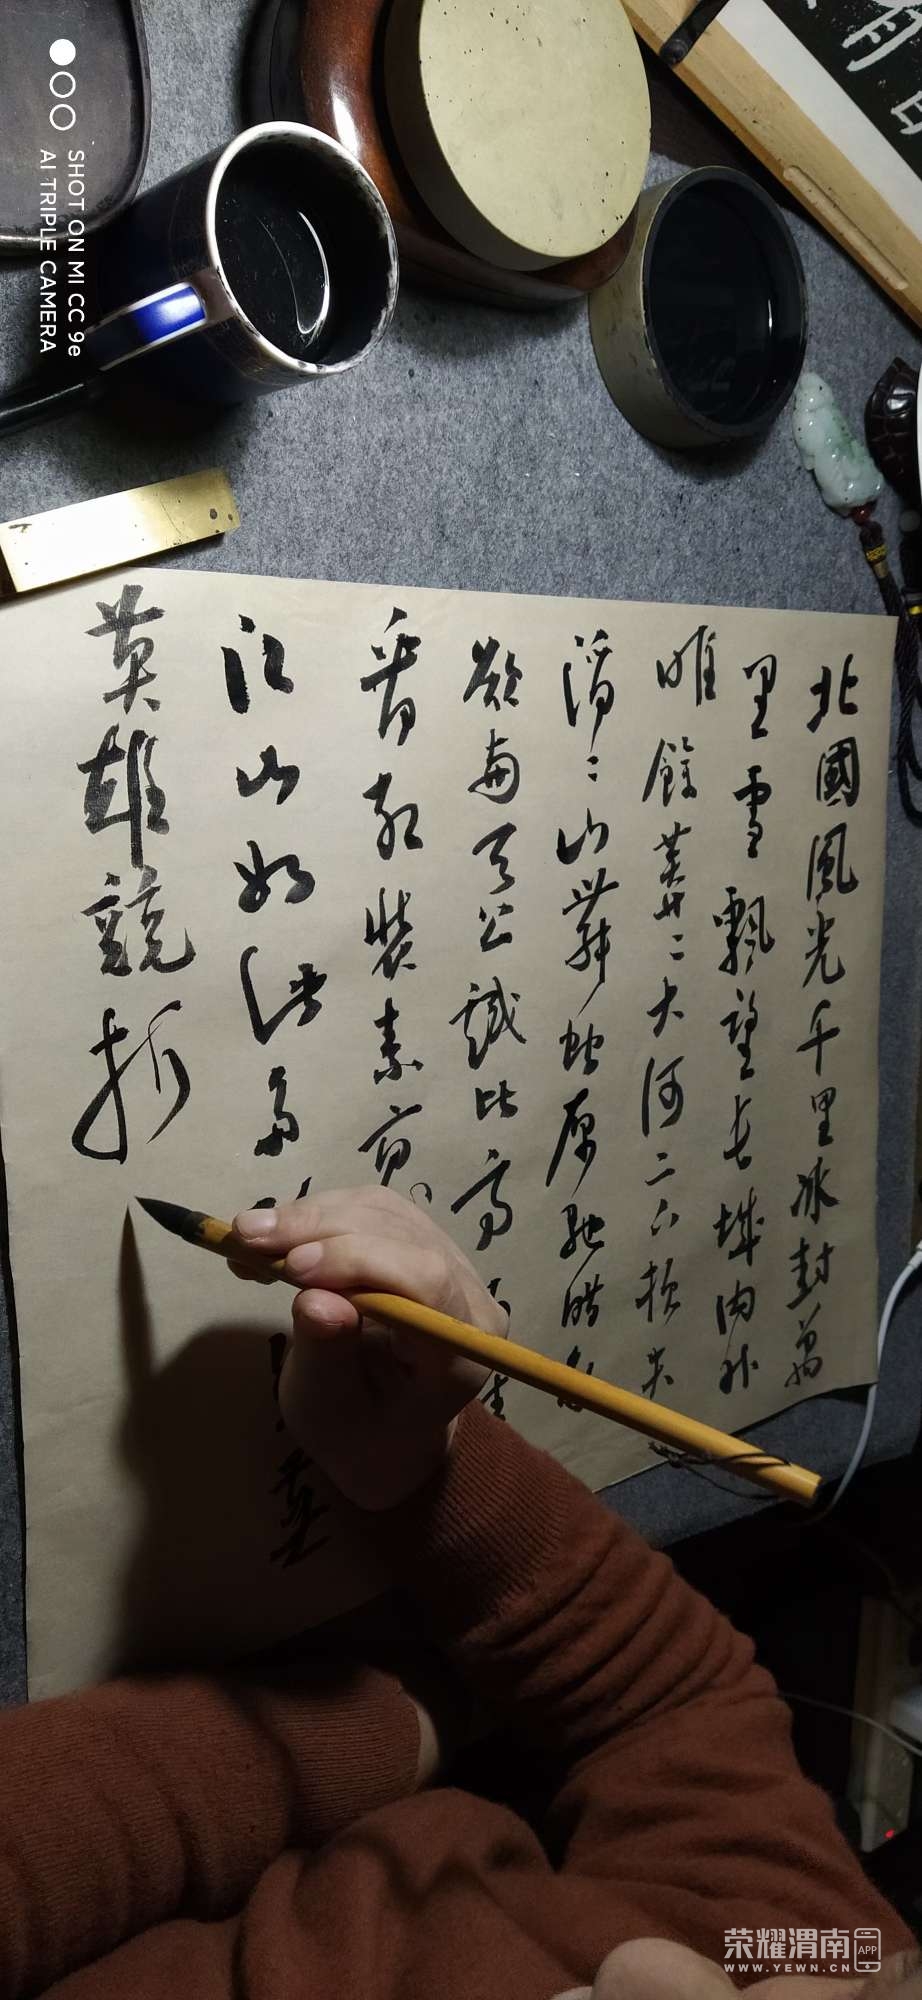 SHOT ON MI CC 9e
AI TRIPLE CAMERA
北國風光千里冰封萬
里雪飄望長城内外
唯餘莽〻大河上下頓失
滔〻山舞蛇原馳蜡象
欲與天公試比高
看紅裝素裹
江山如此多
英雄競折
荣耀渭南
APP
WWW.YEWN.CN